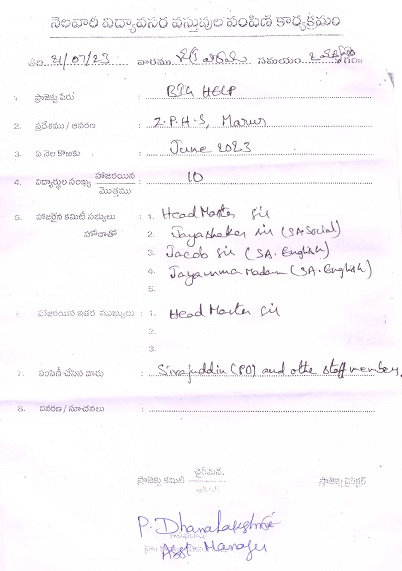 నెలవారి విద్యావసర వస్తువుల పంపిణి కార్యక్రమం
తేది. 21/07/23 వారము సమయం
1. ప్రాజెక్టు పేరు : BTG HELP
2. ప్రదేశము / ఆవరణ : Z.P.H.S, Marur
3. ఏ నెల కొఱకు : June 2023
4. విద్యార్థుల సంఖ్య హాజరయిన / మొత్తము : 10
5. హాజరైన కమిటీ సభ్యులు : 1. Head Master Sir
హోదాతో 2. Jayashekar Sir (SA. Social)
3. Jacob Sir (SA. English)
4. Jayamma Madam (SA. English)
5.
హాజరయిన ఇతర ముఖ్యులు : 1. Head Master Sir
2.
3.
7. పంపిణీ చేసిన వారు : Sirajuddin (PO) and othe staff member,
8. వివరణ / సూచనలు :
చైర్మన్
ప్రాజెక్టు కమిటీ ప్రాజెక్టు డైరెక్టర్
P. Dhanalakshmi
Asst Manager